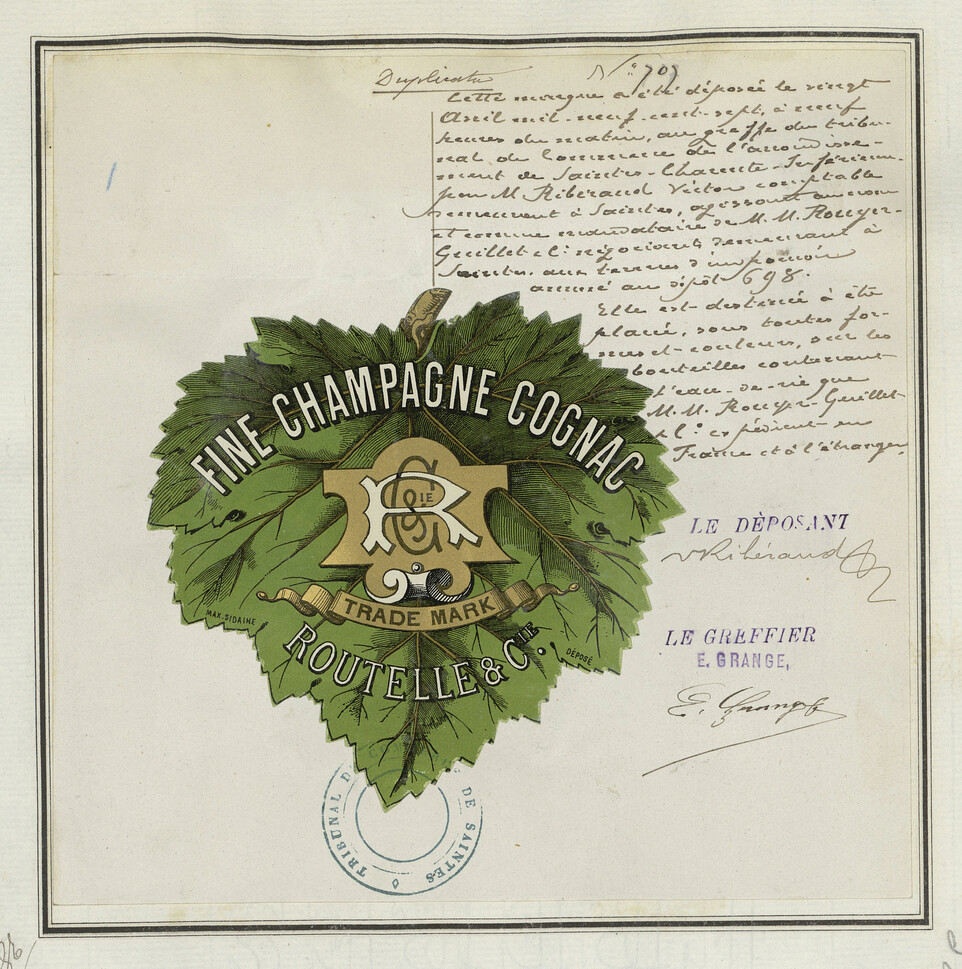 Duplicata
N° 707
Cette marque a été déposée le vingt
Avril mil-neuf-cent-sept, à neuf
heures du matin, au greffe du tribu-
nal de Commerce de l'arrondisse-
ment de Saintes-Charente-Inférieure
par M. Ribéraud Victor comptable
demeurant à Saintes, agissant au nom
et comme mandataire de M. M. Rouyer-
Guillet & Cie négociants demeurant à
Saintes, aux termes d'un pouvoir
annexé au dépôt 698.
Elle est destinée à être
placée, sous toutes for-
mes et couleurs, sur les
bouteilles contenant
l'eau-de-vie que
M. M. Rouyer-Guillet
& Cie expédient en
France et à l'étranger.
FINE CHAMPAGNE COGNAC
R & CIE
TRADE MARK
MAX. SIDAINE
ROUTELLE & CIE.
DÉPOSÉ
LE DÉPOSANT
VRibéraud
LE GREFFIER
E. GRANGE,
E. Grange
TRIBUNAL DE SAINTES